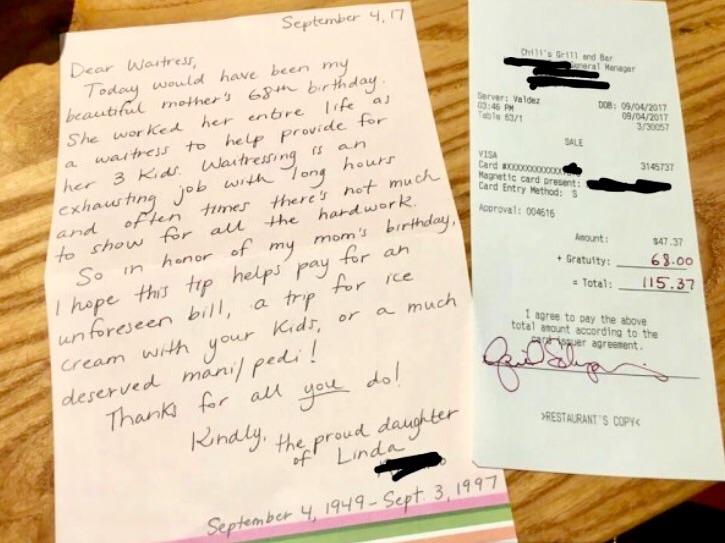 September 4, 17
Dear Waitress,
Today would have been my
beautiful mother's 68th birthday.
She worked her entire life as
a waitress to help provide for
her 3 kids. Waitressing is an
exhausting job with long hours
and often times there's not much
to show for all the hardwork.
So in honor of my mom's birthday,
I hope this tip helps pay for an
unforeseen bill, a trip for ice
cream with your kids, or a much
deserved mani/pedi!
Thanks for all you do!
Kindly, the proud daughter
of Linda
September 4, 1949 - Sept. 3, 1997
Chili's Grill and Bar
General Manager
Server: Valdez DOB: 09/04/2017
03:46 PM 09/04/2017
Table 63/1 3/30057
SALE
VISA 3145737
Card #XXXXXXXXXXXX
Magnetic card present:
Card Entry Method: S
Approval: 004616
Amount: $47.37
+ Gratuity: 68.00
= Total: 115.37
I agree to pay the above
total amount according to the
card issuer agreement.
>RESTAURANT'S COPY<